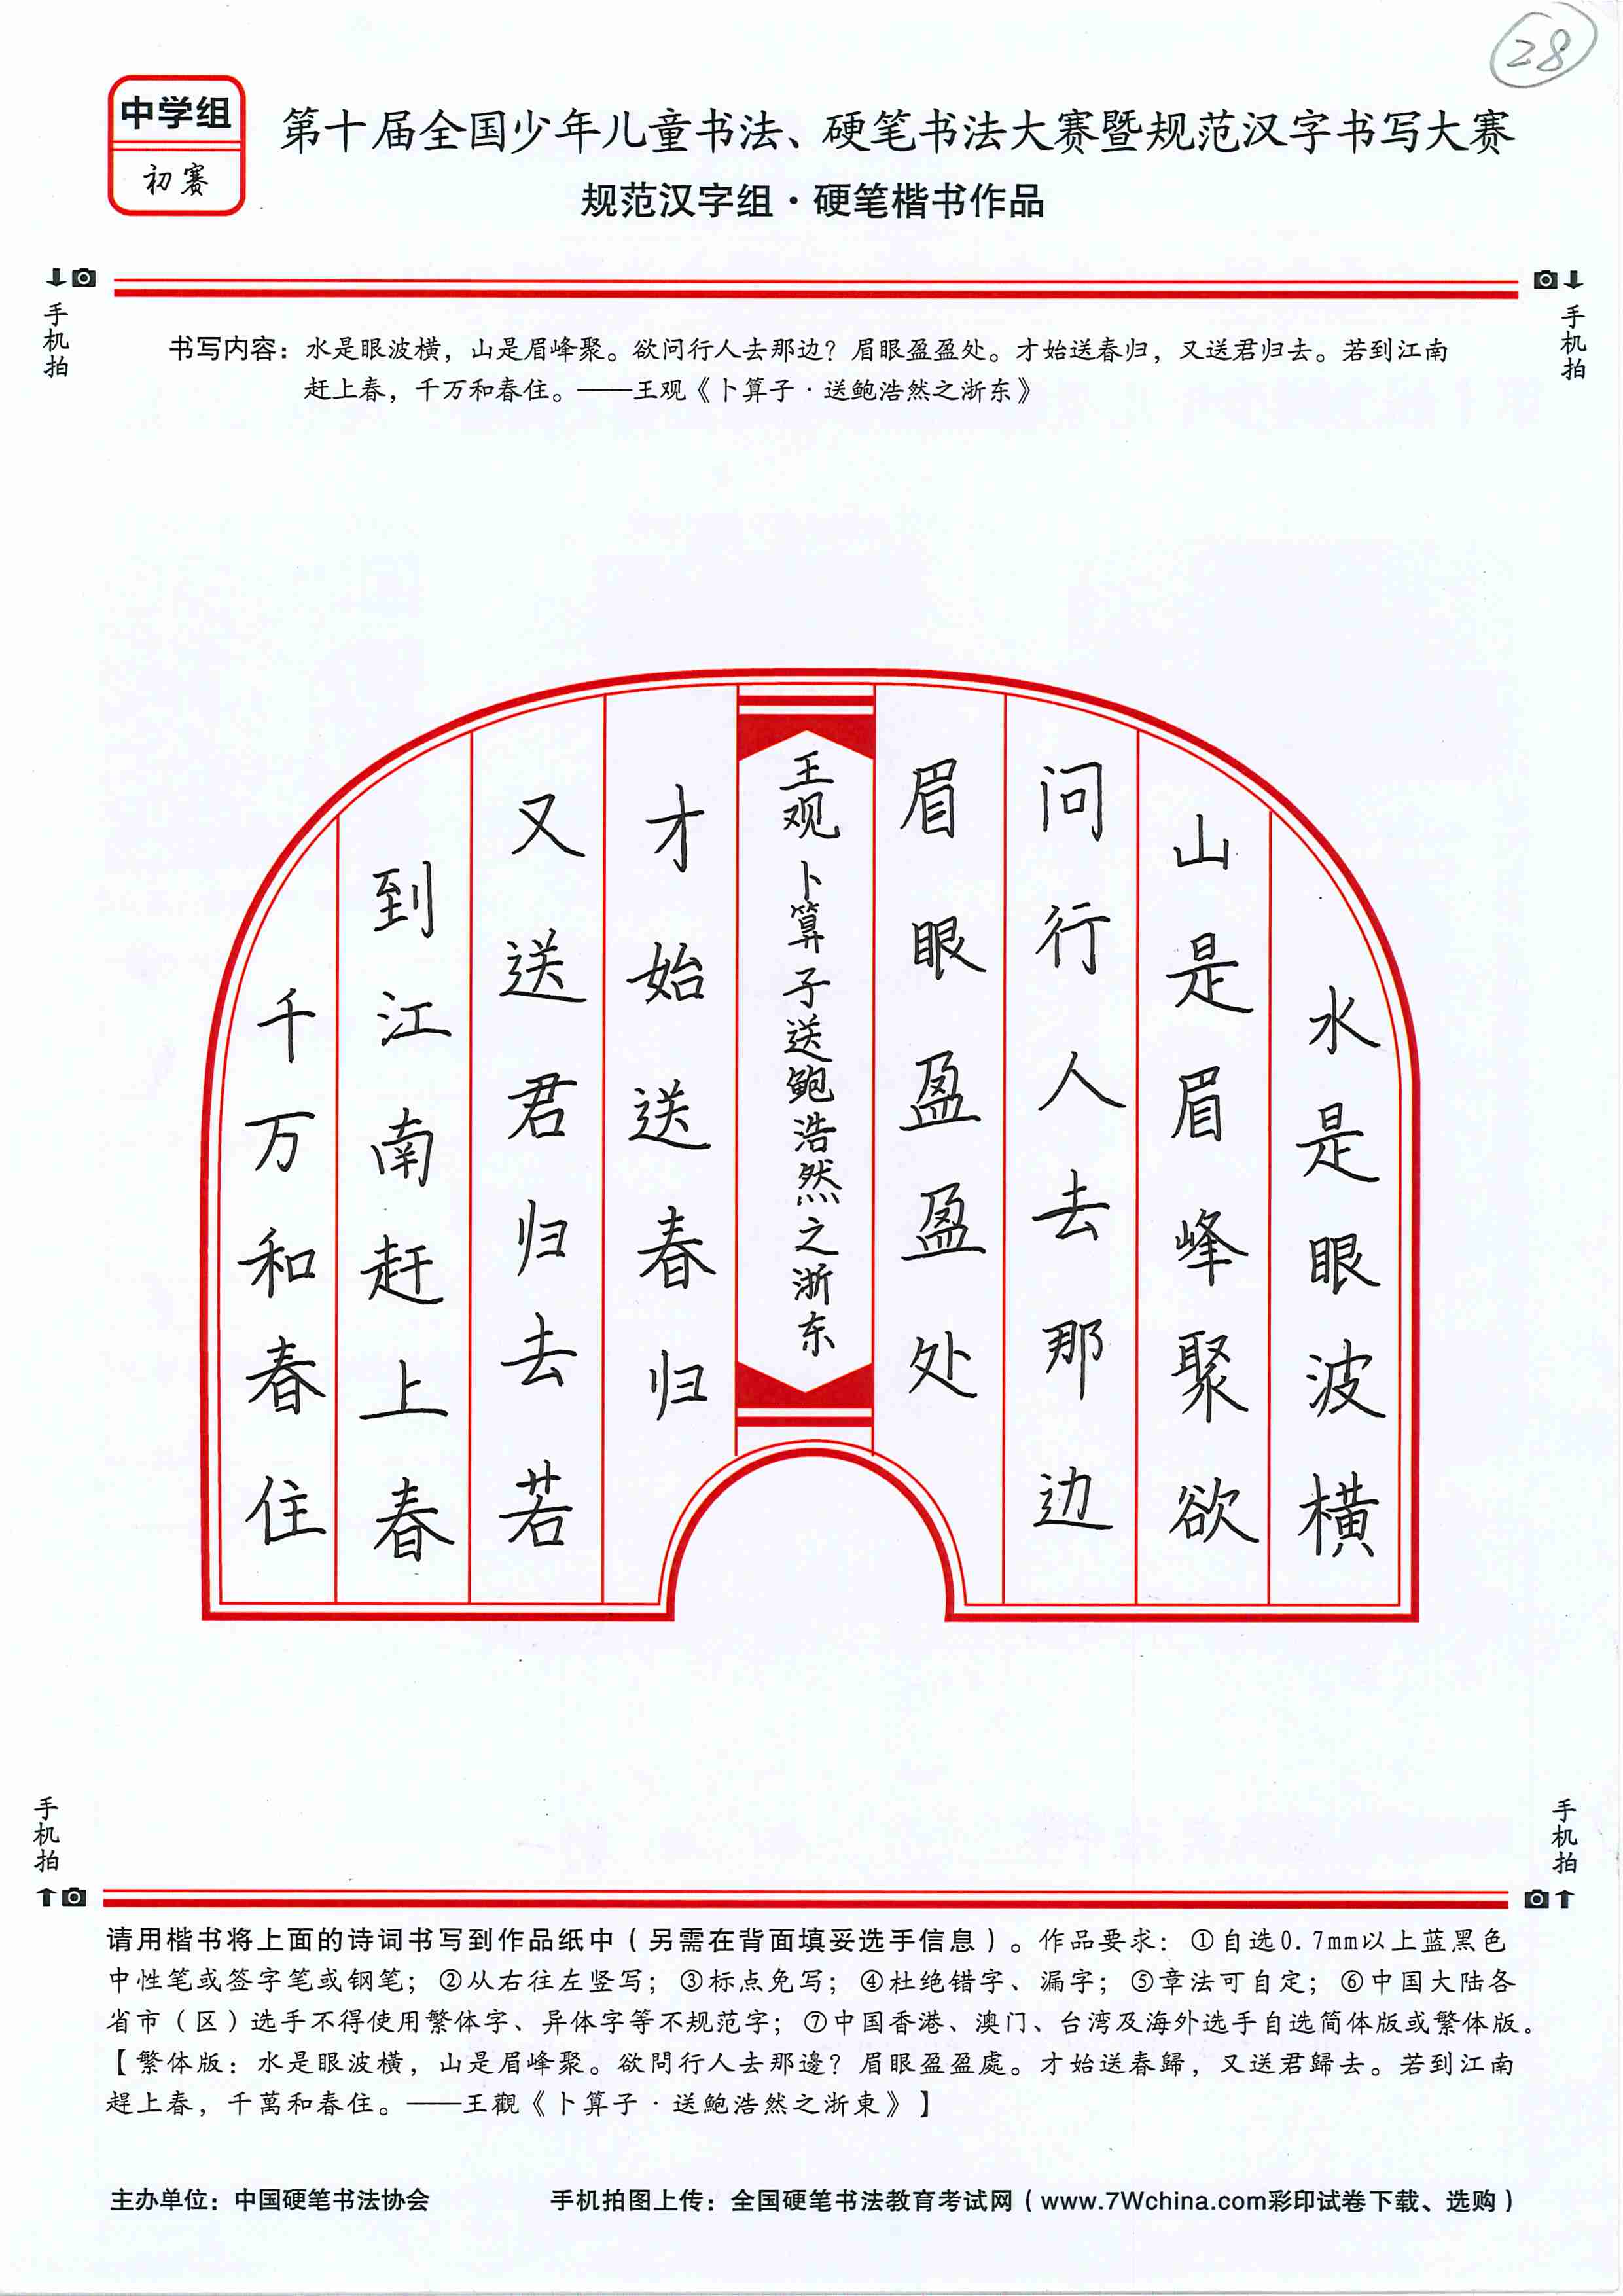 28
中学组
初赛
第十届全国少年儿童书法、硬笔书法大赛暨规范汉字书写大赛
规范汉字组·硬笔楷书作品
手机拍
手机拍
书写内容：水是眼波横，山是眉峰聚。欲问行人去那边？眉眼盈盈处。才始送春归，又送君归去。若到江南
赶上春，千万和春住。——王观《卜算子·送鲍浩然之浙东》
水是眼波横
山是眉峰聚欲
问行人去那边
眉眼盈盈处
王观 卜算子送鲍浩然之浙东
才始送春归
又送君归去若
到江南赶上春
千万和春住
手机拍
手机拍
请用楷书将上面的诗词书写到作品纸中（另需在背面填妥选手信息）。作品要求：①自选0.7mm以上蓝黑色
中性笔或签字笔或钢笔；②从右往左竖写；③标点免写；④杜绝错字、漏字；⑤章法可自定；⑥中国大陆各
省市（区）选手不得使用繁体字、异体字等不规范字；⑦中国香港、澳门、台湾及海外选手自选简体版或繁体版。
【繁体版：水是眼波橫，山是眉峰聚。欲問行人去那邊？眉眼盈盈處。才始送春歸，又送君歸去。若到江南
趕上春，千萬和春住。——王觀《卜算子·送鮑浩然之浙東》】
主办单位：中国硬笔书法协会
手机拍图上传：全国硬笔书法教育考试网（www.7Wchina.com彩印试卷下载、选购）